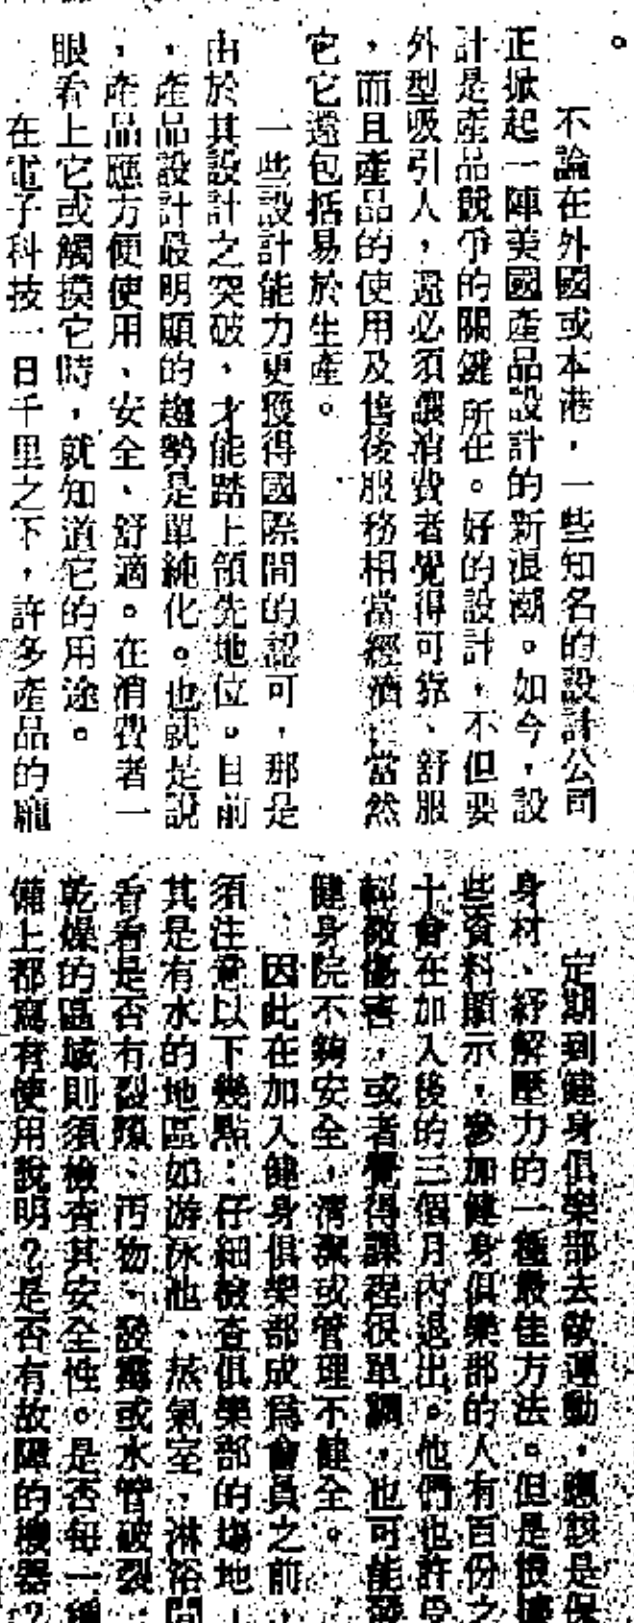 。
不論在外國或本港，一些知名的設計公司
正掀起一陣美國產品設計的新浪潮。如今，設
計是產品競爭的關鍵所在。好的設計，不但要
外型吸引人，還必須讓消費者覺得可靠、舒服
，而且產品的使用及售後服務相當經濟；當然
它它還包括易於生產。
一些設計能力更獲得國際間的認可，那是
由於其設計之突破，才能踏上領先地位。目前
，產品設計最明顯的趨勢是單純化。也就是說
，產品應方便使用、安全、舒適。在消費者一
眼看上它或觸摸它時，就知道它的用途。
在電子科技一日千里之下，許多產品的龐
定期到健身俱樂部去做運動，應該是保
身材、紓解壓力的一種最佳方法。但是根據
些資料顯示，參加健身俱樂部的人有百份之
十會在加入後的三個月內退出。他們也許受
輕微傷害，或者覺得課程很單調，也可能發
健身院不夠安全，清潔或管理不健全。
因此在加入健身俱樂部成爲會員之前，
須注意以下幾點：仔細檢查俱樂部的場地
其是有水的地區如游泳池、蒸氣室、淋浴間
看看是否有裂隙、污物、發霉或水管破裂
乾燥的區域則須檢查其安全性。是否每一種
備上都寫有使用說明？是否有故障的機器？